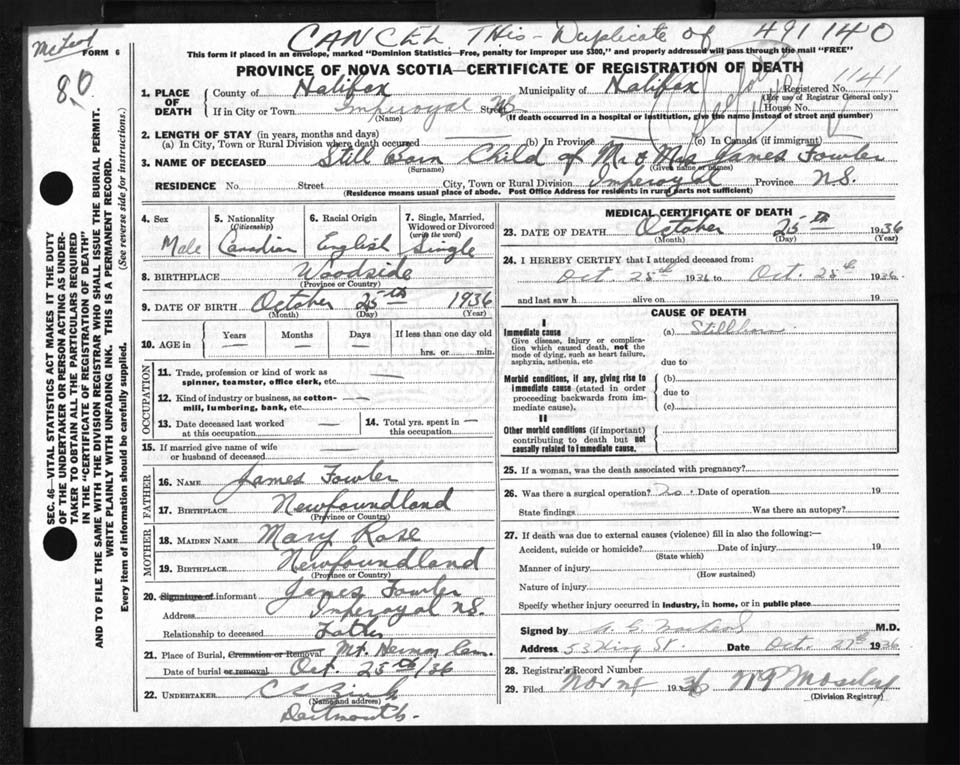 McLeod
CANCEL This - Duplicate of 491140
FORM 6
80
This form if placed in an envelope, marked "Dominion Statistics—Free, penalty for improper use $300," and properly addressed will pass through the mail "FREE"
PROVINCE OF NOVA SCOTIA—CERTIFICATE OF REGISTRATION OF DEATH
1141
1. PLACE OF DEATH
County of Halifax
Municipality of Halifax
Registered No.
(For use of Registrar General only)
If in City or Town Imperoyal Street NS House No.
(Name) (If death occurred in a hospital or institution, give the name instead of street and number)
2. LENGTH OF STAY (in years, months and days)
(a) In City, Town or Rural Division where death occurred (b) In Province (c) In Canada (if immigrant)
3. NAME OF DECEASED Still Born Child of Mr & Mrs James Fowler
(Surname) (Given name or names)
RESIDENCE No. Street City, Town or Rural Division Imperoyal Province N.S.
(Residence means usual place of abode. Post Office Address for residents in rural parts not sufficient)
4. Sex Male
5. Nationality (Citizenship) Canadian
6. Racial Origin English
7. Single, Married, Widowed or Divorced (write the word) Single
8. BIRTHPLACE Woodside
(Province or Country)
9. DATE OF BIRTH October 25th 1936
(Month) (Day) (Year)
10. AGE in Years — Months — Days — If less than one day old
hrs. or min.
OCCUPATION
11. Trade, profession or kind of work as spinner, teamster, office clerk, etc. —
12. Kind of industry or business, as cotton-mill, lumbering, bank, etc. —
13. Date deceased last worked at this occupation —
14. Total yrs. spent in this occupation —
15. If married give name of wife or husband of deceased —
FATHER
16. NAME James Fowler
17. BIRTHPLACE Newfoundland
(Province or Country)
MOTHER
18. MAIDEN NAME Mary Rose
19. BIRTHPLACE Newfoundland
(Province or Country)
20. Signature of informant James Fowler
Address Imperoyal N.S.
Relationship to deceased Father
21. Place of Burial, Cremation or Removal Mt. Hermon Cem.
Date of burial or removal Oct. 25th/36
22. UNDERTAKER
(Name and address)
Dartmouth.
MEDICAL CERTIFICATE OF DEATH
23. DATE OF DEATH October 25th 1936
(Month) (Day) (Year)
24. I HEREBY CERTIFY that I attended deceased from:
Oct. 25th 1936 to Oct. 25th 1936
and last saw h alive on 19
CAUSE OF DEATH
I
Immediate cause
Give disease, injury or complication which caused death, not the mode of dying, such as heart failure, asphyxia, asthenia, etc
(a) Stillborn
due to
Morbid conditions, if any, giving rise to immediate cause (stated in order proceeding backwards from immediate cause).
(b)
due to
(c)
II
Other morbid conditions (if important) contributing to death but not causally related to immediate cause.
25. If a woman, was the death associated with pregnancy?
26. Was there a surgical operation? no. Date of operation 19
State findings Was there an autopsy?
27. If death was due to external causes (violence) fill in also the following:—
Accident, suicide or homicide? Date of injury 19
(State which)
Manner of injury
(How sustained)
Nature of injury
Specify whether injury occurred in industry, in home, or in public place
Signed by M.D.
Address 53 King St. Date Oct. 27th 1936
28. Registrar's Record Number
29. Filed 1936
(Division Registrar)
SEC. 46—VITAL STATISTICS ACT MAKES IT THE DUTY
OF THE UNDERTAKER OR PERSON ACTING AS UNDER-
TAKER TO OBTAIN ALL THE PARTICULARS REQUIRED
IN THE "CERTIFICATE OF REGISTRATION OF DEATH"
AND TO FILE THE SAME WITH THE DIVISION REGISTRAR WHO SHALL ISSUE THE BURIAL PERMIT.
WRITE PLAINLY WITH UNFADING INK. THIS IS A PERMANENT RECORD.
Every item of information should be carefully supplied. (See reverse side for instructions.)